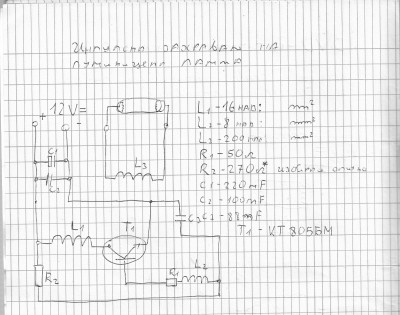 Импулсно захранване на
луминисцентна лампа
+ 12V= -
C1
C2
L3
L1
T1
C3
R2
R1 L2
L1 - 16 нав: mm²
L2 - 8 нав: mm²
L3 - 200 нав mm²
R1 - 50Ω
R2 - 270Ω*
C1 - 220mF
C2 - 100mF
C3 - 88mF
T1 - KT 805БМ